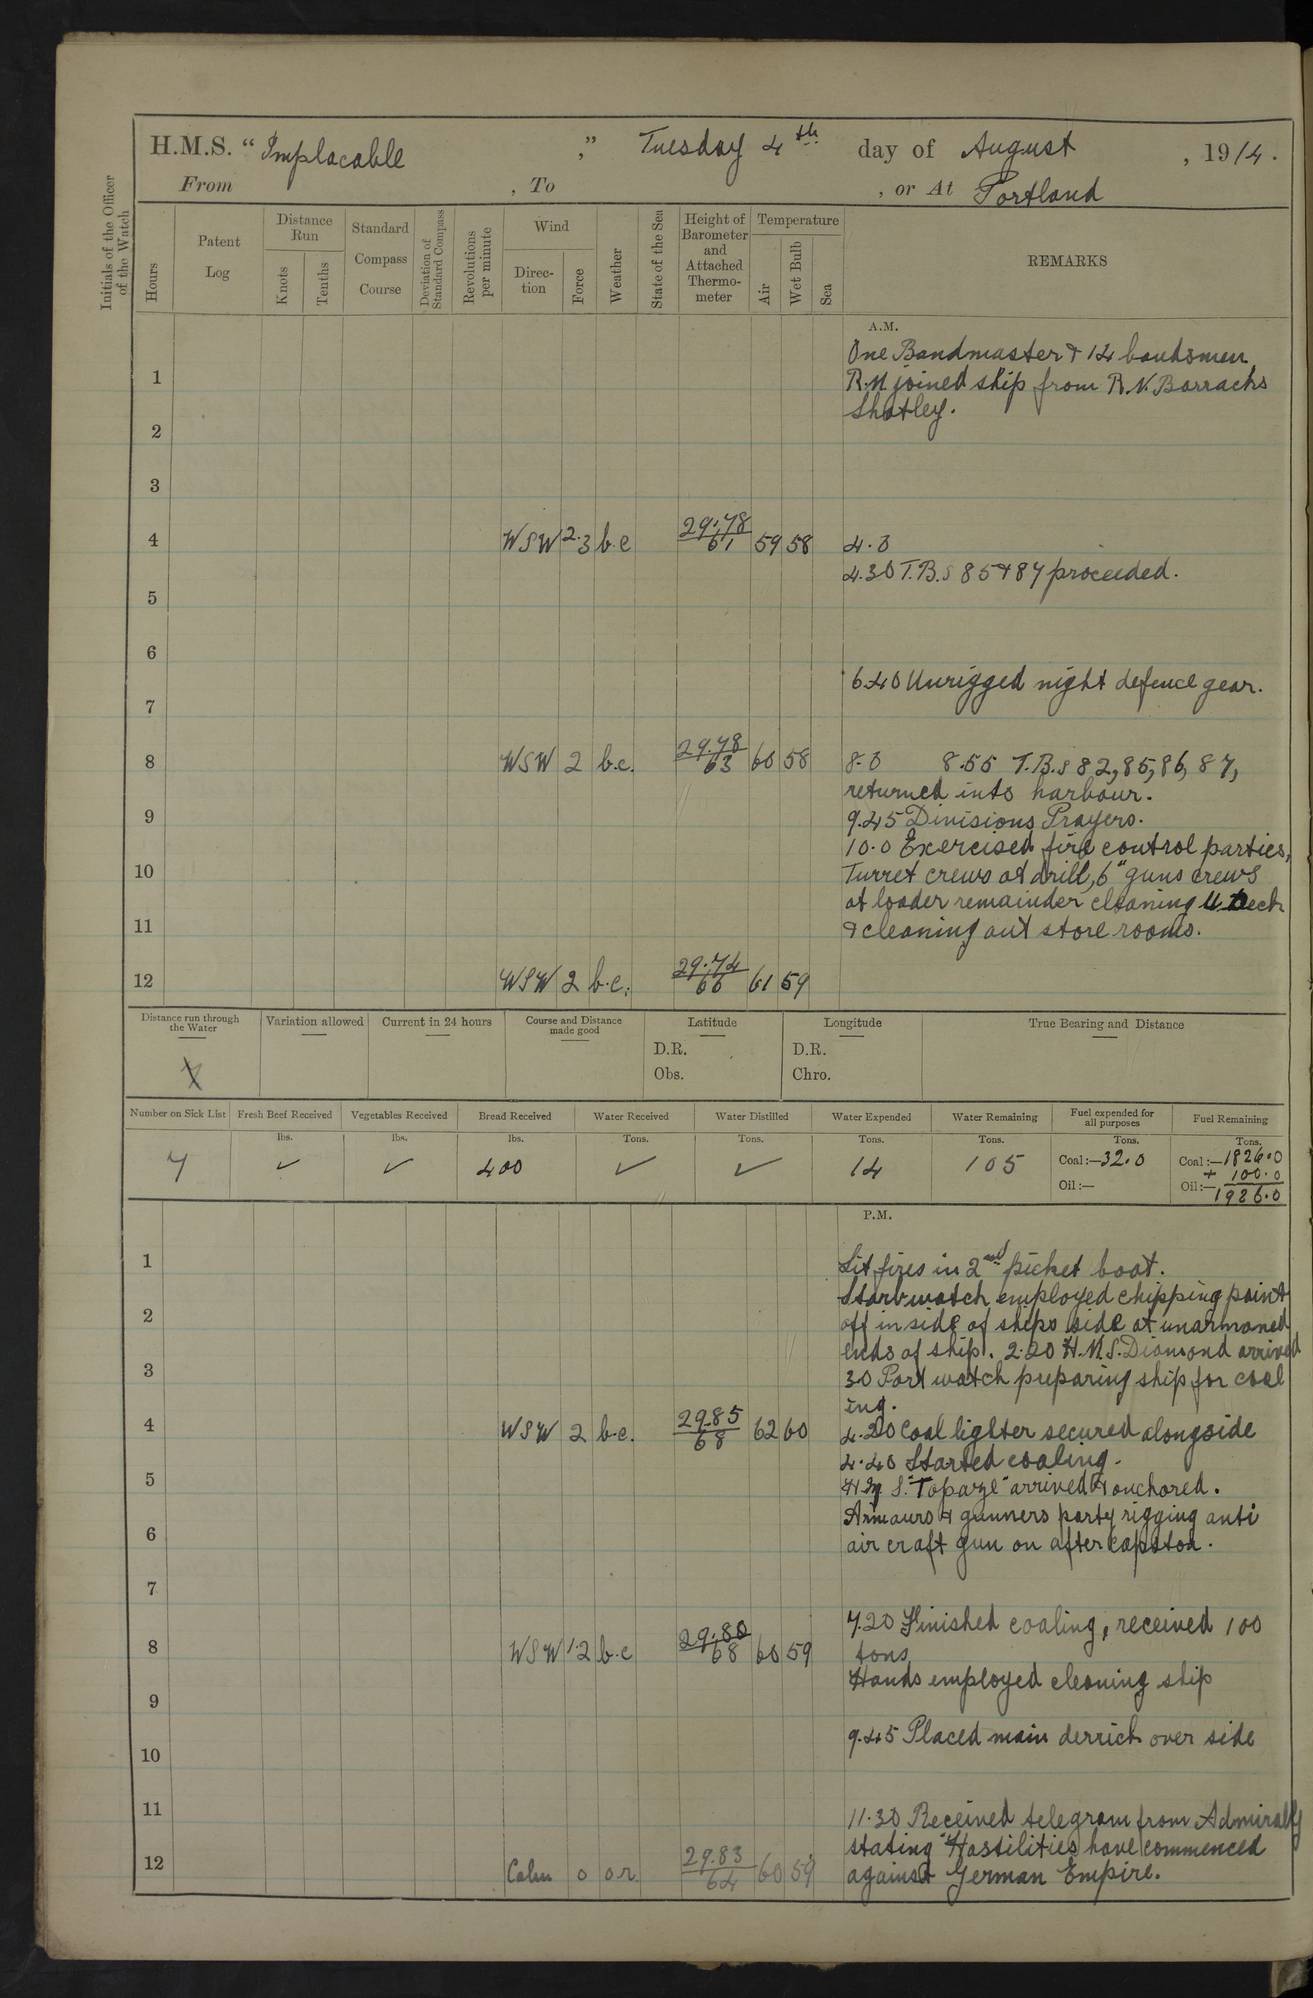 H.M.S. "Implacable ," Tuesday 4th day of August , 1914.
From , To , or At Portland
Initials of the Officer of the Watch
Hours
Patent Log
Distance Run
Knots
Tenths
Standard Compass Course
Deviation of Standard Compass
Revolutions per minute
Wind
Direction
Force
Weather
State of the Sea
Height of Barometer and Attached Thermometer
Temperature
Air
Wet Bulb
Sea
REMARKS
A.M.
One Bandmaster & 14 bandsmen
1 R.M joined ship from R.N. Barracks
Shotley.
2
3
4 WSW 2.3 b.c 29.78 61 59 58 4.0
4.30 T.B.s 85 & 87 proceeded.
5
6
6.40 Unrigged night defence gear.
7
8 WSW 2 b.c. 29.78 63 60 58 8.0 8.55 T.B.s 82, 85, 86, 87,
returned into harbour.
9 9.45 Divisions Prayers.
10.0 Exercised fire control parties,
10 Turret crews at drill, 6" guns crews
at loader remainder cleaning U Deck
11 & cleaning out store rooms.
12 WSW 2 b.c. 29.74 66 61 59
Distance run through the Water
Variation allowed
Current in 24 hours
Course and Distance made good
Latitude
D.R.
Obs.
Longitude
D.R.
Chro.
True Bearing and Distance
Number on Sick List Fresh Beef Received Vegetables Received Bread Received Water Received Water Distilled Water Expended Water Remaining Fuel expended for all purposes Fuel Remaining
lbs. lbs. lbs. Tons. Tons. Tons. Tons. Tons. Tons.
7 ✓ ✓ 400 ✓ ✓ 14 105 Coal :—32.0 Coal :—1826.0
+ 100.0
Oil :— Oil :—1926.0
P.M.
1 Lit fires in 2nd picket boat.
Starb watch employed chipping paint
2 off inside of ships side at unarmoned
ends of ship. 2.20 H.M.S. Diamond arrived
3 30 Port watch preparing ship for coal
ing.
4 WSW 2 b.c. 29.85 68 62 60 4.20 Coal lighter secured alongside
4.40 Started coaling.
5 H M S. "Topaze" arrived & anchored.
Armours & gunners party rigging anti
6 air craft gun on after capston.
7
7.20 Finished coaling, received 100
8 WSW 1.2 b.c 29.80 68 60 59 tons
Hands employed cleaning ship
9
9.45 Placed main derrick over side
10
11 11.30 Received telegram from Admiralty
stating "Hostilities have commenced
12 Calm 0 o.r 29.83 64 60 59 against German Empire.